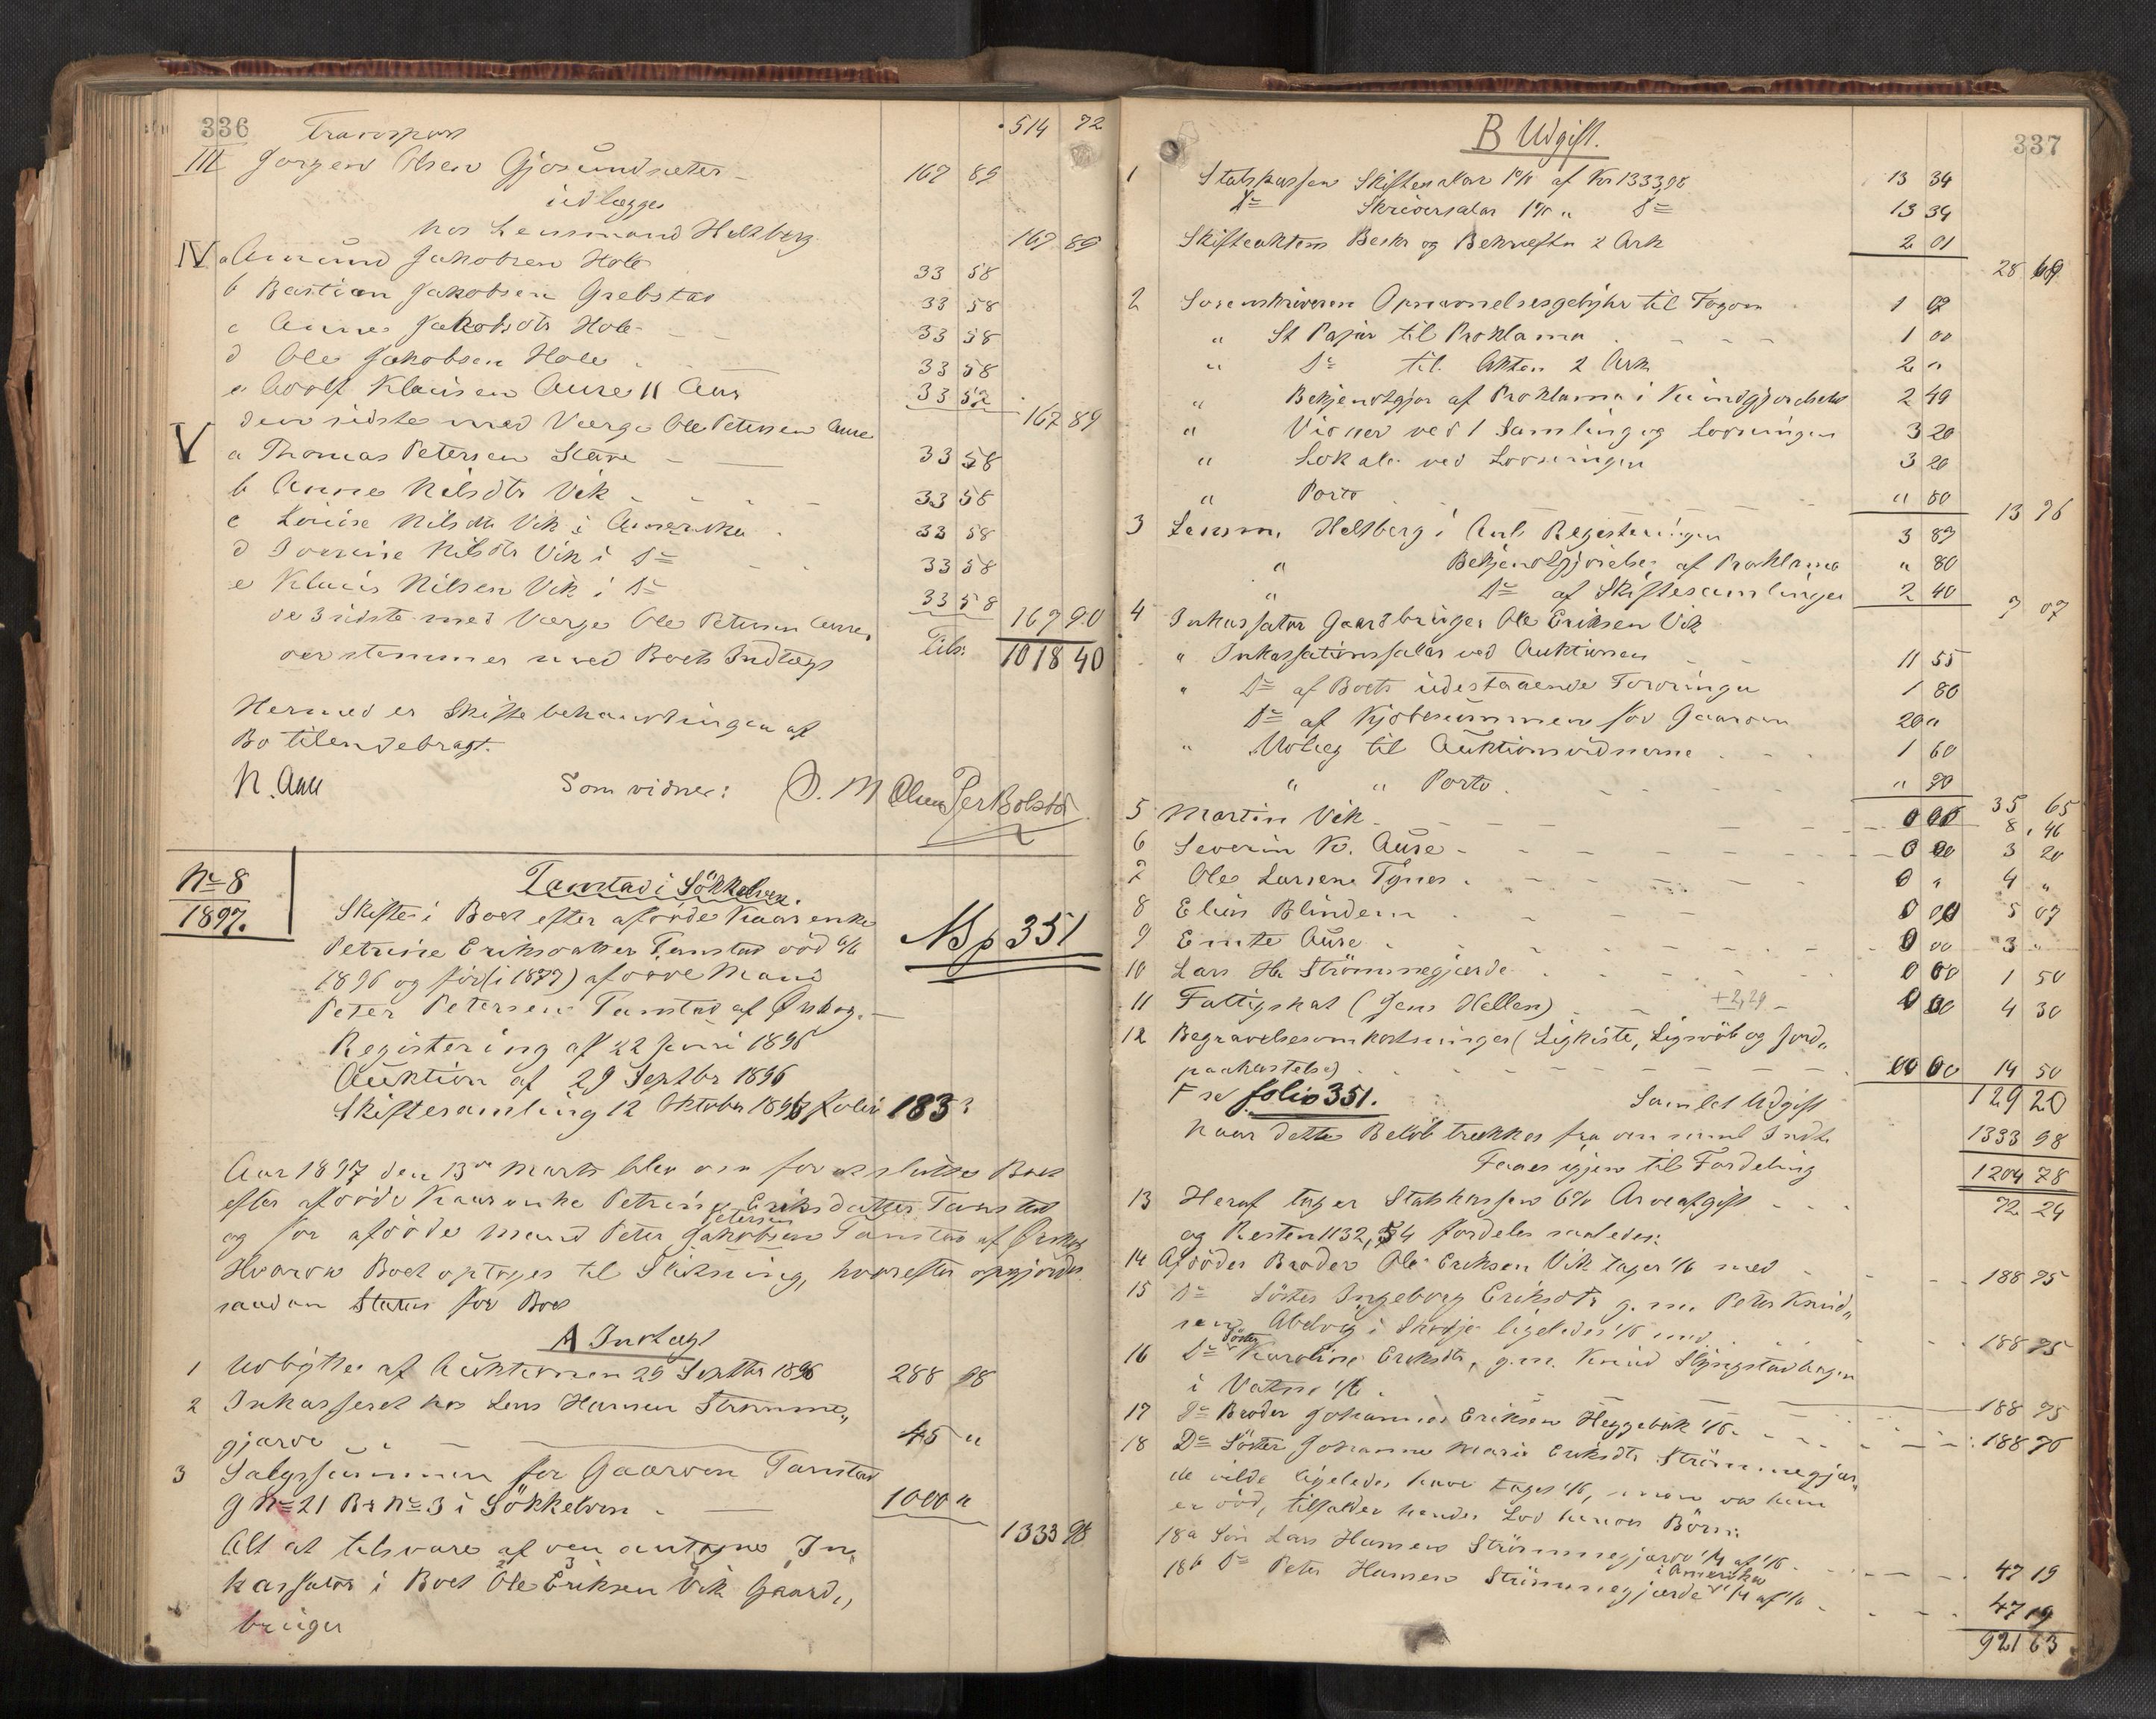 336 Transport 514 72
III Jørgen Olsen Gjøsundsæter 167 89
udlægges
hos Lensmand Heltberg 167 89
IV a Amund Jakobsen Hole 33 58
b Bastian Jakobsen Grebstad 33 58
c Anne Jakobsdtr Hole 33 58
d Ole Jakobsen Hole 33 58
e Adolf Klausen Aure 11 Aar 33 57
den sidste med Værge Ole Petersen Aure 167 89
V a Thomas Petersen 33 58
b Anne Nilsdtr Vik 33 58
c Louise Nilsdtr Vik i Amerika 33 58
d Nilsdtr Vik i Do 33 58
e Klaus Nilsen Vik i Do 33 58
de 3 sidste med Værge Ole Petersen Aure 167 90
overstemmer med Boets Indtægt Tils: 1018 40
Hermed er Skiftebehandlingen af
Bo tilendebragt.
N. Aall Som vidner: O. M Olsen Per Bolstad
No 8
1897.
Tamstad i Søkkelven.
Skifte i Boet efter afdøde Kaarenke
Petrine Eriksdatter Tamstad død
1896 og før (i 1877) afdøde Mand
Peter Petersen Tamstad af Ørskog.
NB p 351
Registering af 22 Juni 1896
Auktion af 29 Septbr 1896
Skiftesamling 12 Oktober 1896 folio 183
Aar 1897 den 13de Marts blev den for at slutte Boet
efter afdøde Kaarenke Petrine Eriksdatter Tamstad
og før afdøde Mand Peter Jakobsen Petersen Tamstad af Ørskog
Hvorom Boet optages til Slutning, hvorefter opgjordes
saadan Status for Boet
A Indtægt
1 Udbytte af Auktionen 29 Septbr 1896 288 98
2 Inkasseret hos Lars Hansen Strømme„
gjærde 45 "
3 Salgssummen for Gaarden Tamstad
G No 21 Br No 3 i Søkkelven 1000 "
1333 98
Alt at tilsvare af den antagne In„
kassator i Boet Ole Eriksen Vik Gaard„
bruger
337
B Udgift.
1 Statskassen Skiftesalær 1% af Kr 1333,98 13 34
Do Skriversalær 1% " Do 13 34
Skifteaktens Beskr og Bekræftn 2 Ark 2 01
28 69
2 Sorenskriveren Opnævnelsesgebyhr til Fogden 1 07
" St Papir til Proklama 1 00
" Do til Akten 2 Ark 2 "
" Bekjendtgjør af Proklama i Kundgjørelsest 2 49
" Vidner ved 1 Samling og Lodningen 3 20
" Lokale ved Lodningen 3 20
" Porto " 80
13 76
3 Lensm. Heltberg i Anl. Registeringen 3 87
" Bekjendtgjørelse af Proklama " 80
" Do af Skiftesamlinger 2 40
7 07
4 Inkassator Gaardbruger Ole Eriksen Vik
" Inkassationssalær ved Auktionen 11 55
" Do af Boets udestaaende Fordringer 1 80
Do af Kjøbesummen for Gaarden 20 "
" Udlæg til Auktionsvidnerne 1 60
" " Porto " 70
35 65
5 Martin Vik 8,46
6 Severin K. Aure 3 20
7 Ole Larsen Tynes 4 "
8 Elias Blindem 5 07
9 Aure 3 "
10 Lars H. Strømmegjærde 1 50
11 Fattigskat (Jens Hellen) +2,29 4 30
12 Begravelsesomkostninger (Ligkiste, Ligsvøb og Jord„
paakastelse) 14 50
F se folio 351. Samlet Udgift 129 20
Naar dette Beløb trækkes fra den saml Indt. 1333 98
Faaes igjen til Fordeling 1204 78
13 Heraf tager Statskassen 6% Arveafgift 72 24
og Resten 1132,54 fordeles saaledes:
14 Afdødes Broder Ole Eriksen Vik tager 1/6 med 188 75
15 Do Søster Ingeborg Eriksdtr g. m. Peter Knud„
sen i Skodje ligeledes 1/6 med 188 75
16 Do Søster Karoline Eriksdtr, g.m. Knud Slyngstadhagen
i Vatne 1/6 188 75
17 Do Broder Johannes Eriksen Heggebak 1/6 188 76
18 Do Søster Johanne Marie Eriksdtr Strømmegjær„
de vilde ligeledes have taget 1/6, men da hun
er død, tilfalder hendes Lod hendes Børn:
18a Søn Lars Hansen Strømmegjærde 1/4 af 1/6 47 19
18b Do Peter Hansen Strømmegjærde i Amerika 1/4 af 1/6 47 19
921 63